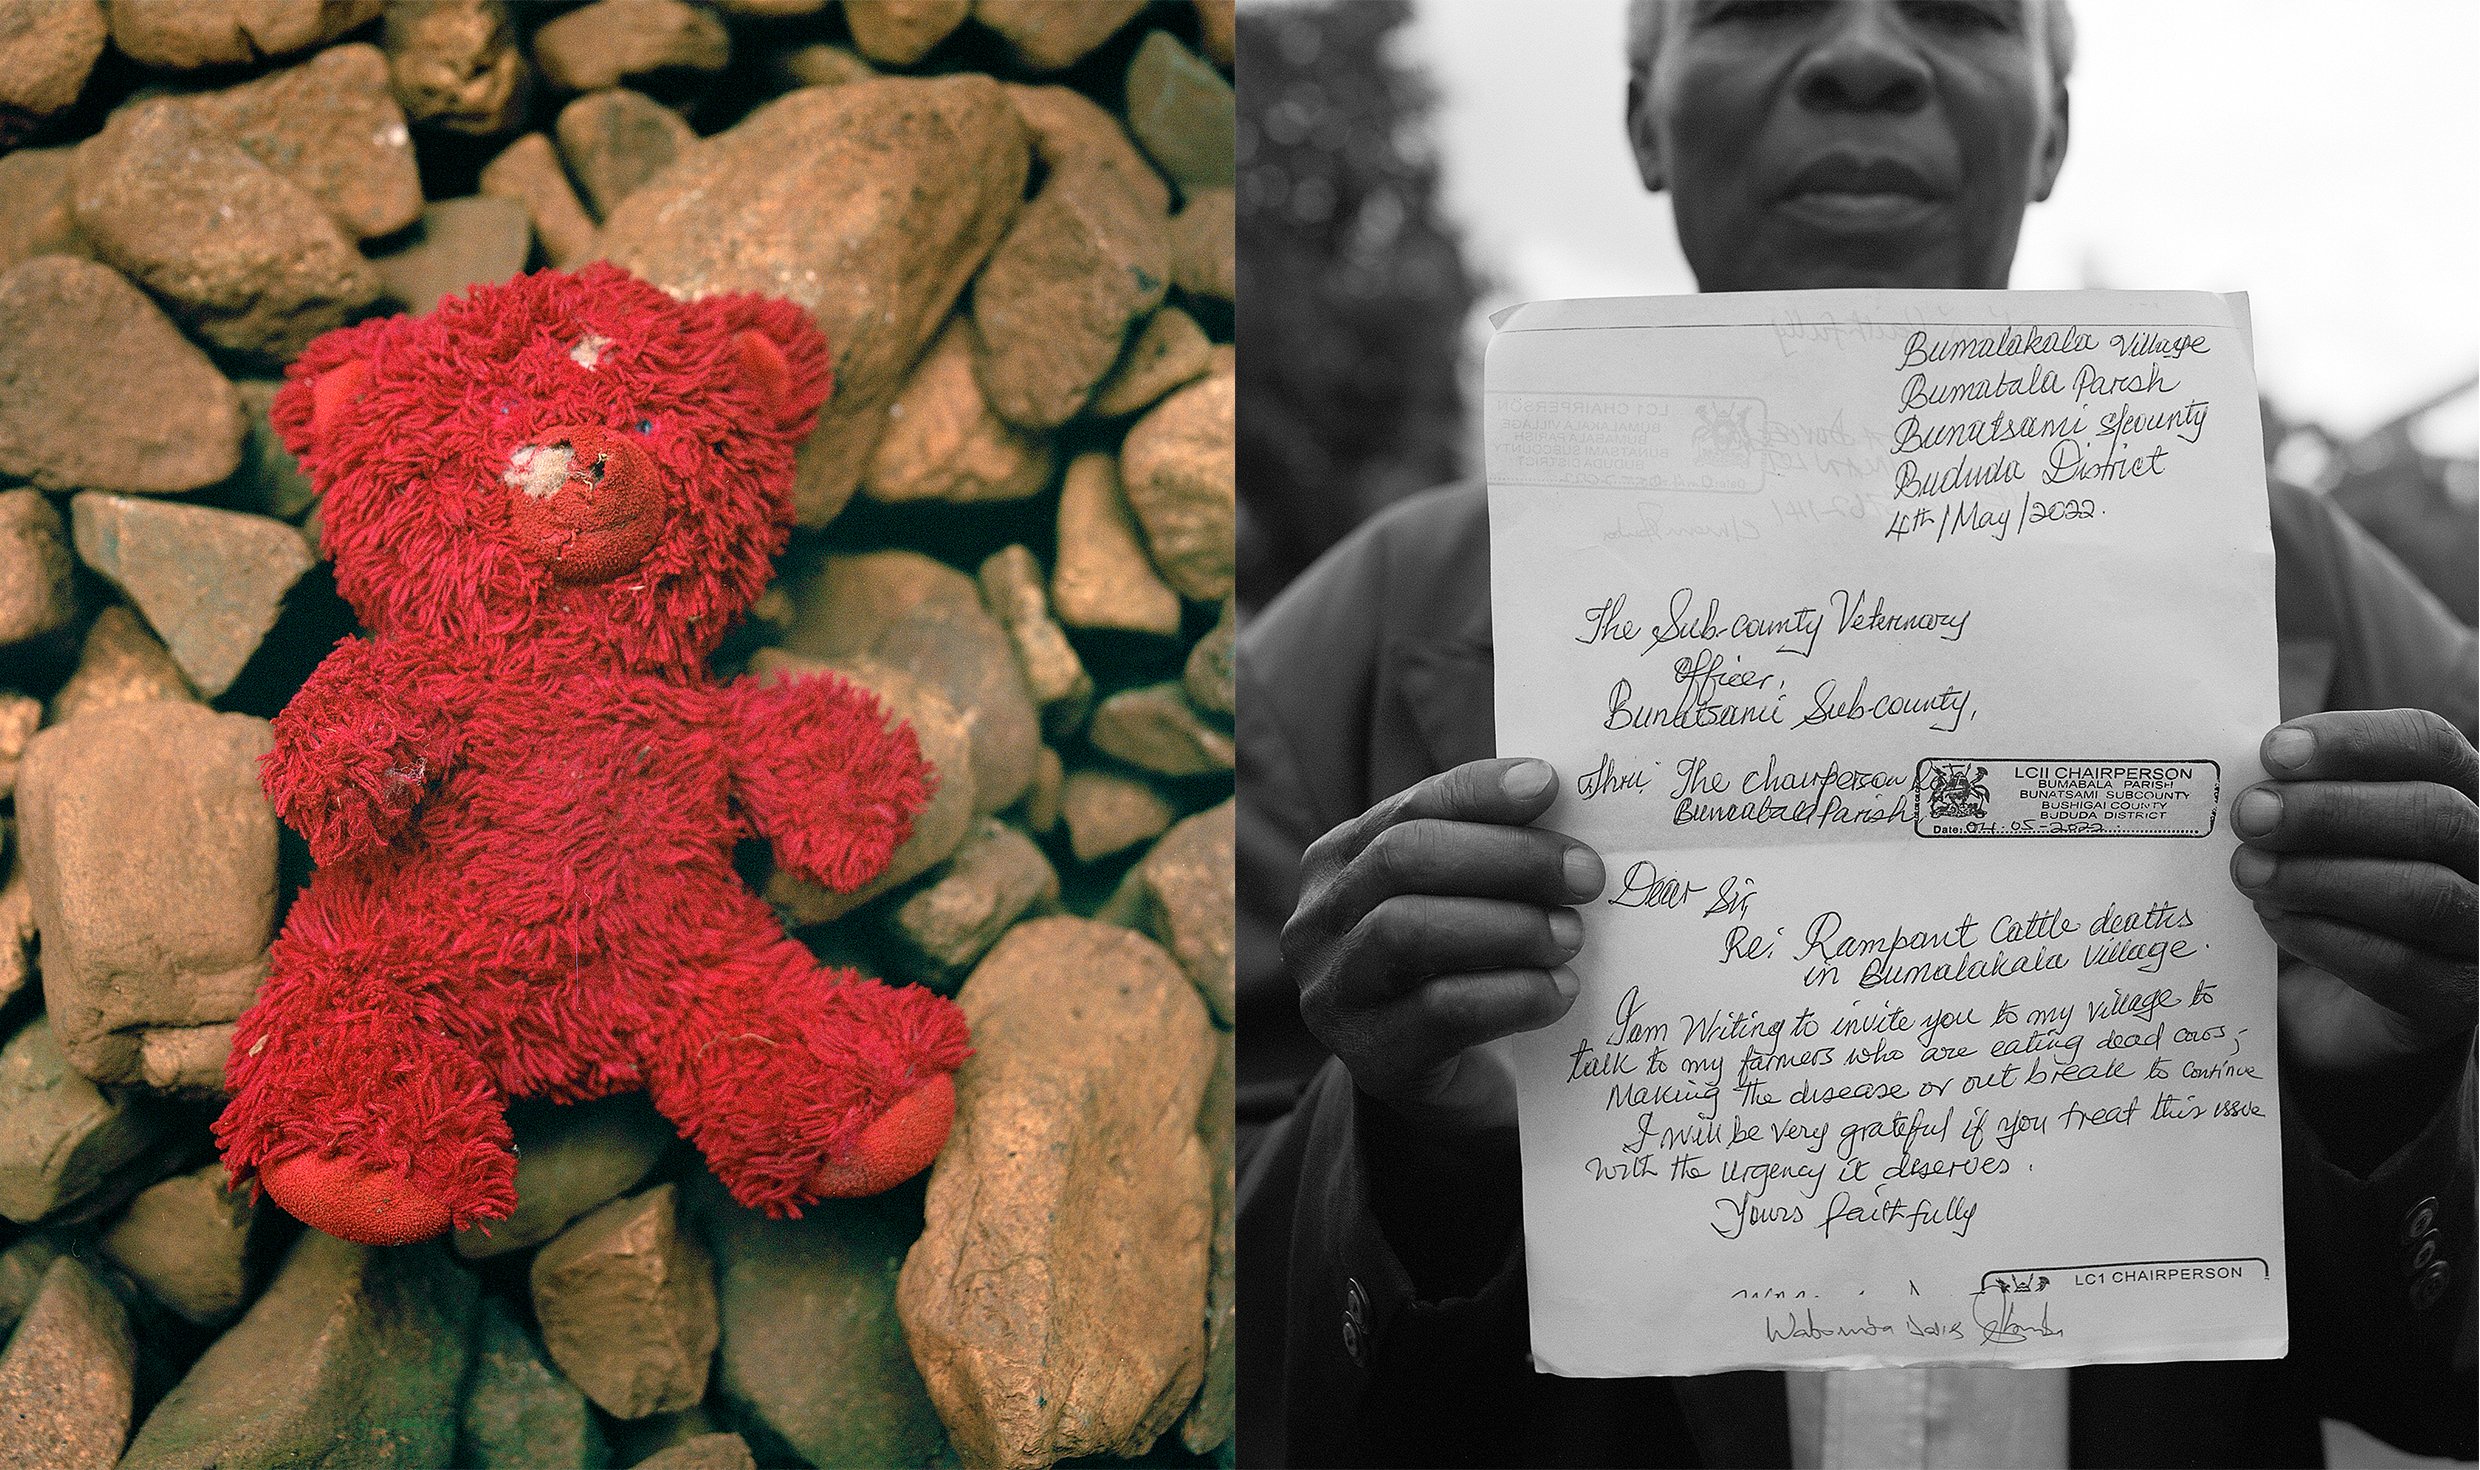 Bumalakala Village
Bumabala Parish
Bunatsami S/county
Bududa District
4th/May/2022.
The Sub-county Veternary
Officer,
Bunatsami Sub-county,
Thru: The chairperson
Bumabala Parish,
LCII CHAIRPERSON
BUMABALA PARISH
BUNATSAMI SUBCOUNTY
BUSHIGAI COUNTY
BUDUDA DISTRICT
Date: 04-05-2022
Dear Sir,
Re: Rampant Cattle deaths
in Bumalakala Village.
I am Writing to invite you to my village to
talk to my farmers who are eating dead cows;
Making the disease or out break to continue
I will be very grateful if you treat this issue
with the urgency it deserves.
Yours faithfully
LC1 CHAIRPERSON